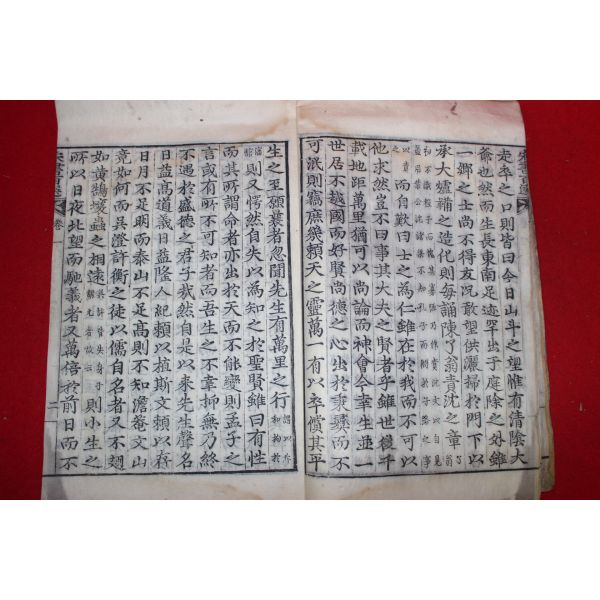 走卒之口則皆曰今日山斗之望惟有淸陰大
爺也然而生長東南足迹罕出於庭除之外雖
一鄕之士尙不得友况敢望供灑掃於門下以
承大爐韛之造化則每誦陳了翁責沈之章
而自歎曰士之爲仁雖在於我而不可以
他求然豈不曰事其大夫之賢者乎雖世後千
載地距萬里猶可以尙論而神會今幸生並一
世居不越國而好賢尙德之心出於秉彝而不
可泯則窃庶幾賴天之靈萬一有以卒償其平
生之至願焉者忽聞先生有萬里之行
則又愕然自失以爲知之於聖賢雖有性
而其所謂命者亦出於天而不能變則孟子之
言或有所不可知者而吾生之不幸抑無乃終
不遇於盛德之君子哉然自是以來先生聲名
日益高道義日益隆人紀賴以拉斯文賴以存
日月不足明而泰山不足高則不知澹菴文山
竟如何而吳澄許衡之徒以儒自名者又不翅
如黃鵠壤蟲之相遠 則小生之
所以日夜北望而馳義者又萬倍於前日而不